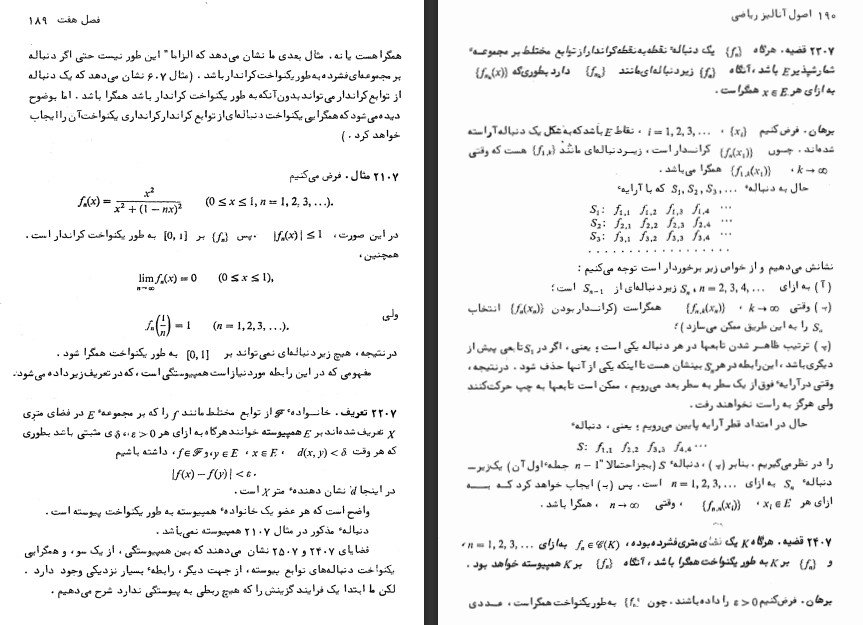 فصل هفت ۱۸۹
همگرا هست یا نه . مثال بعدی ما نشان می‌دهد که الزاما" این طور نیست حتی اگر دنباله
بر مجموعه‌ای فشرده به طور یکنواخت کراندار باشد . (مثال ۶۰۷ نشان می‌دهد که یک دنباله
از توابع کراندار می‌تواند بدون آنکه به طور یکنواخت کراندار باشد همگرا باشد . اما بوضوح
دیده می‌شود که همگرایی یکنواخت دنباله‌ای از توابع کراندار کرانداری یکنواخت آن را ایجاب
خواهد کرد . )
۲۱۰۷ مثال . فرض می‌کنیم
fₙ(x) = x² / (x² + (1 − nx)²) (0 ≤ x ≤ 1, n = 1, 2, 3, ...).
در این صورت ، |fₙ(x)| ≤ 1 . پس {fₙ} بر [0, 1] به طور یکنواخت کراندار است .
همچنین ،
lim fₙ(x) = 0 (0 ≤ x ≤ 1),
n→∞
ولی
fₙ(1/n) = 1 (n = 1, 2, 3, ...).
در نتیجه ، هیچ زیر دنباله‌ای نمی‌تواند بر [0, 1] به طور یکنواخت همگرا شود .
مفهومی که در این رابطه مورد نیاز است همپیوستگی است ، که در تعریف زیر داده می‌شود.
۲۲۰۷ تعریف . خانوادهٔ ℱ از توابع مختلط مانند f را که بر مجموعهٔ E در فضای متری
X تعریف شده‌اند بر E همپیوسته خوانند هرگاه به ازای هر ε > 0 ، δ ی مثبتی باشد بطوری
که هر وقت d(x, y) < δ ، x ∈ E ، y ∈ E ، و f ∈ ℱ ، داشته باشیم
|f(x) − f(y)| < ε.
در اینجا d نشان دهندهٔ متر X است .
واضح است که هر عضو یک خانوادهٔ همپیوسته به طور یکنواخت پیوسته است .
دنبالهٔ مذکور در مثال ۲۱۰۷ همپیوسته نمی‌باشد .
قضایای ۲۴۰۷ و ۲۵۰۷ نشان می‌دهند که بین همپیوستگی ، از یک سو ، و همگرایی
یکنواخت دنباله‌های توابع پیوسته ، از جهت دیگر ، رابطهٔ بسیار نزدیکی وجود دارد .
لکن ما ابتدا یک فرایند گزینش را که هیچ ربطی به پیوستگی ندارد شرح می‌دهیم .
۱۹۰ اصول آنالیز ریاضی
۲۳۰۷ قضیه . هرگاه {fₙ} یک دنبالهٔ نقطه به نقطه کراندار از توابع مختلط بر مجموعهٔ
شمارشپذیر E باشد ، آنگاه {fₙ} زیر دنباله‌ای مانند {fₙₖ} دارد بطوری‌که {fₙₖ(x)}
به ازای هر x ∈ E همگراست .
برهان . فرض کنیم {xᵢ} ، i = 1, 2, 3, ... ، نقاط E باشد که به شکل یک دنباله آراسته
شده‌اند . چون {fₙ(x₁)} کراندار است ، زیر دنباله‌ای مانند {f₁,ₖ} هست که وقتی
k → ∞ ، {f₁,ₖ(x₁)} همگرا می‌باشد .
حال به دنبالهٔ S₁, S₂, S₃, ... که با آرایهٔ
S₁: f₁,₁ f₁,₂ f₁,₃ f₁,₄ ···
S₂: f₂,₁ f₂,₂ f₂,₃ f₂,₄ ···
S₃: f₃,₁ f₃,₂ f₃,₃ f₃,₄ ···
. . . . . . . . . . . . . . . . . .
نشانش می‌دهیم و از خواص زیر برخوردار است توجه می‌کنیم :
( آ ) به ازای n = 2, 3, 4, ... ، Sₙ زیر دنباله‌ای از Sₙ₋₁ است ؛
(ب) وقتی k → ∞ ، {fₙ,ₖ(xₙ)} همگراست (کراندار بودن {fₙ(xₙ)} انتخاب
Sₙ را به این طریق ممکن می‌سازد ) ؛
(پ) ترتیب ظاهر شدن تابعها در هر دنباله یکی است ؛ یعنی ، اگر در S₁ تابعی پیش از
دیگری باشد ، این رابطه در هر Sₙ بینشان هست تا اینکه یکی از آنها حذف شود . در نتیجه ،
وقتی در آرایهٔ فوق از یک سطر به سطر بعد می‌رویم ، ممکن است تابعها به چپ حرکت کنند
ولی هرگز به راست نخواهند رفت .
حال در امتداد قطر آرایه پایین می‌رویم ؛ یعنی ، دنبالهٔ
S: f₁,₁ f₂,₂ f₃,₃ f₄,₄ ···
را در نظر می‌گیریم . بنابر (پ) ، دنبالهٔ S (بجز احتمالا" n − 1 جملهٔ اول آن ) یک زیر–
دنبالهٔ Sₙ به ازای n = 1, 2, 3, ... است . پس (ب) ایجاب خواهد کرد که به
ازای هر xᵢ ∈ E ، {fₙ,ₙ(xᵢ)} ، وقتی n → ∞ ، همگرا باشد .
۲۴۰۷ قضیه . هرگاه K یک فضای متری فشرده بوده ، fₙ ∈ 𝒞(K) به ازای n = 1, 2, 3, ... ،
و {fₙ} بر K به طور یکنواخت همگرا باشد ، آنگاه {fₙ} بر K همپیوسته خواهد بود .
برهان . فرض کنیم ε > 0 را داده باشند . چون {fₙ} به طور یکنواخت همگراست ، عددی